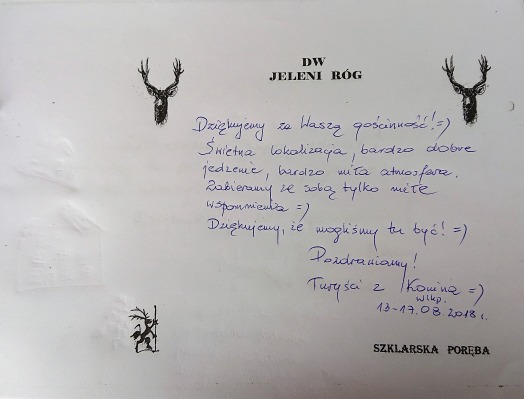 DW
JELENI RÓG
Dziękujemy za Waszą gościnność! =)
Świetna lokalizacja, bardzo dobre
jedzenie, bardzo miła atmosfera.
Zabieramy ze sobą tylko miłe
wspomnienia =)
Dziękujemy, że mogliśmy tu być! =)
Pozdrawiamy!
Turyści z Konina =)
wlkp.
13-17.08.2018 r.
SZKLARSKA PORĘBA